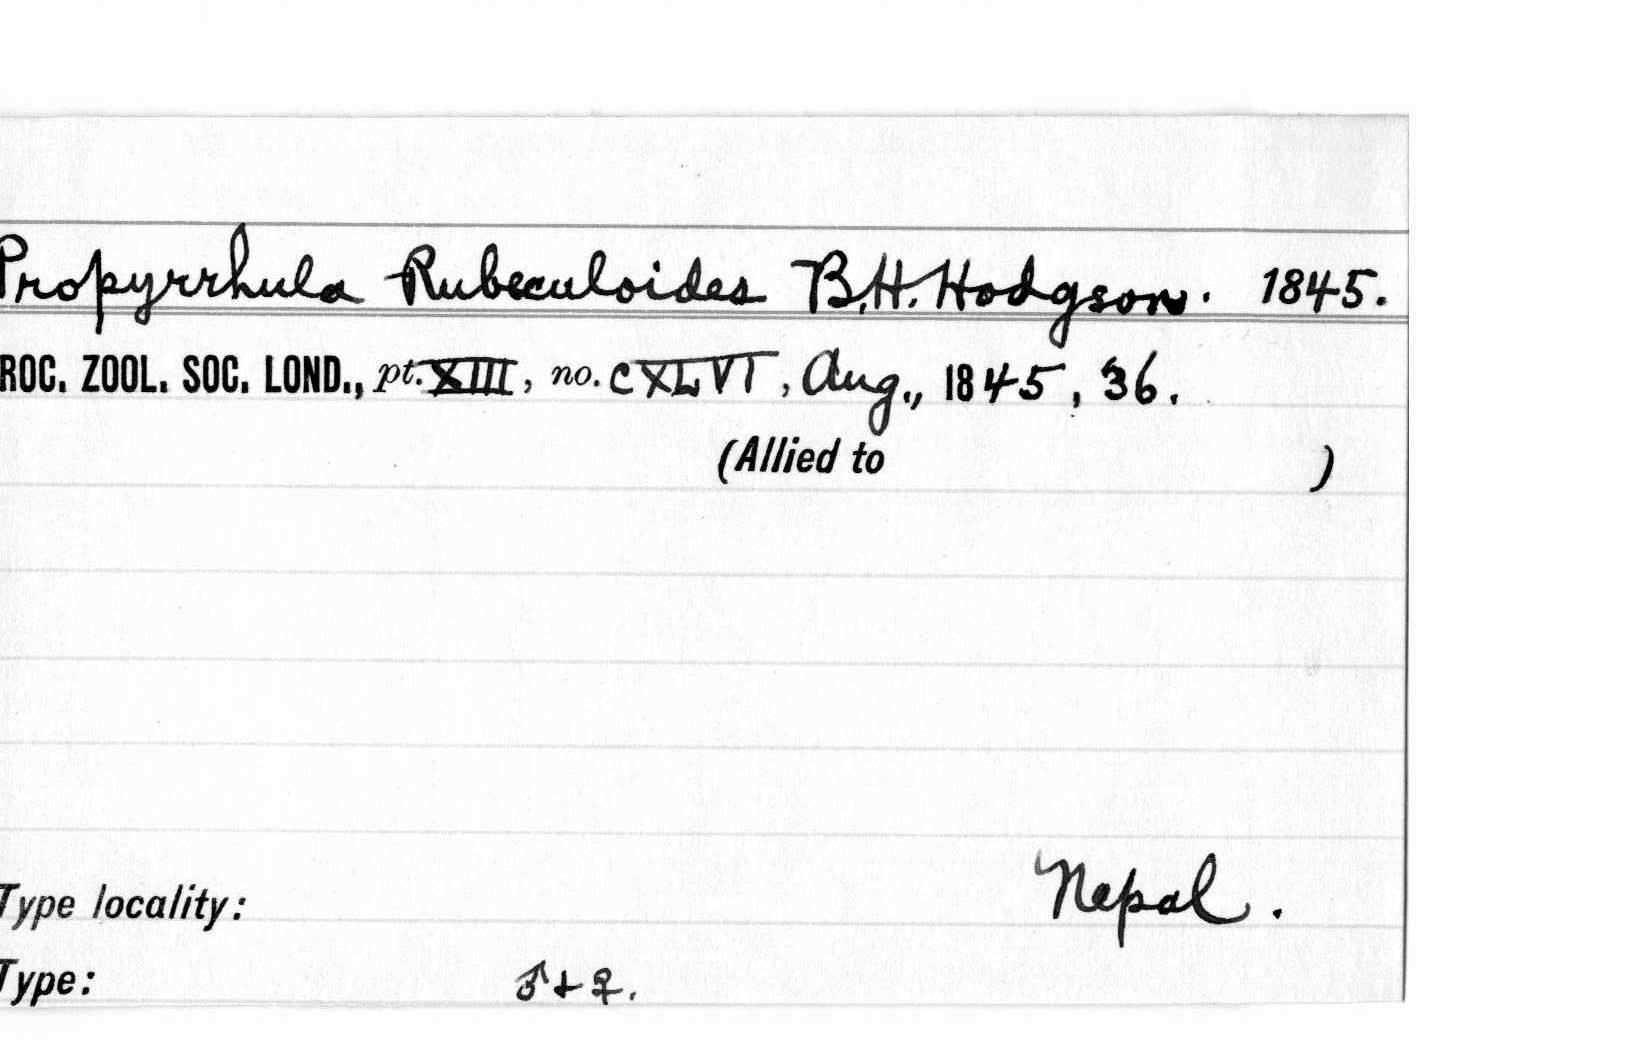 Propyrrhula Rubeculoides B.H. Hodgson. 1845.
ROC. ZOOL. SOC. LOND., pt. XIII, no. CXLVI, Aug., 1845, 36.
(Allied to )
Nepal.
Type locality:
Type: ♂ + ♀.